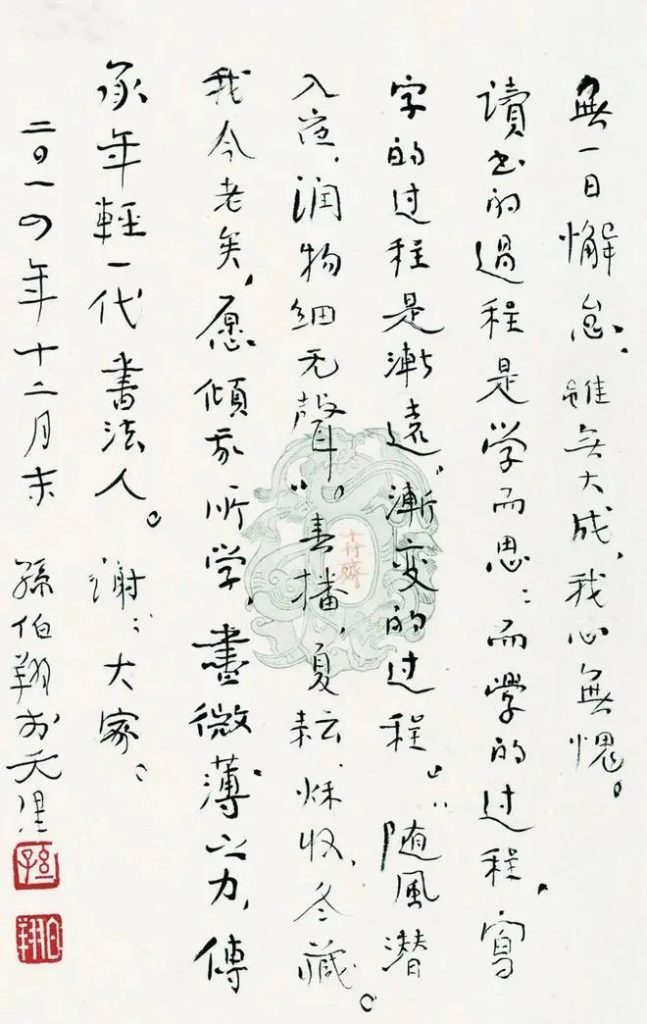 無一日懈怠，雖無大成，我心無愧。
讀书的過程是学而思：而學的过程，寫
字的过程是漸遠“漸变的过程”：“随風潛
入夜，润物细无聲”。春播，夏耘，秌收，冬藏。
我今老矣，愿倾我所学，盡微薄之力，傳
承年輕一代書法人。謝：大家：
二〇一四年十二月末 孫伯翔於天津
孫
伯翔
十竹齋